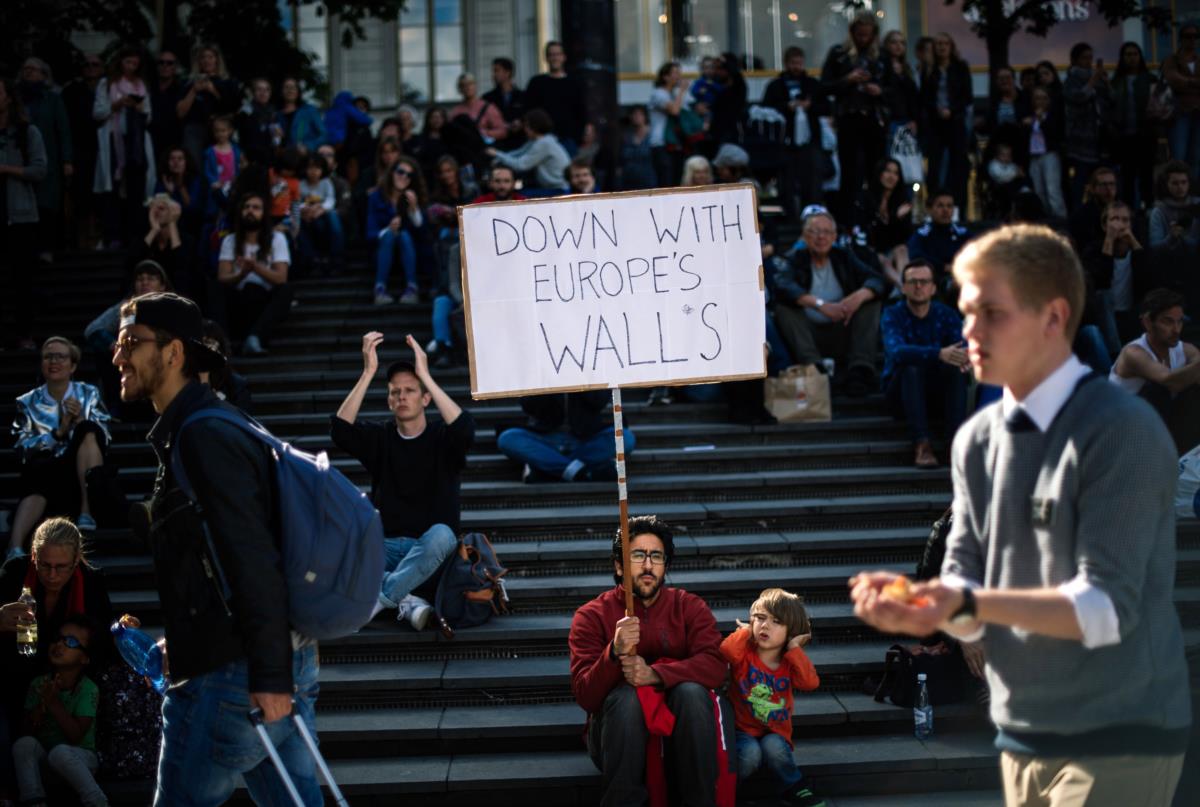 DOWN WITH
EUROPE'S
WALL'S